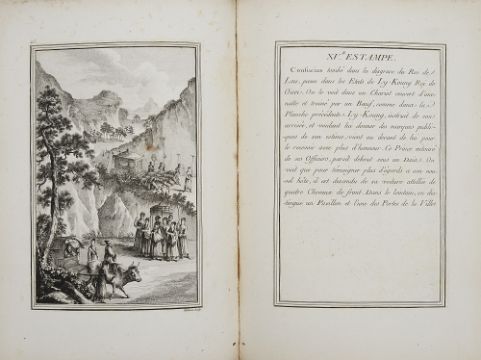 XV.e ESTAMPE.
Confucius tombé dans la disgrace du Roi de
Lou, passe dans les Etats de Ly-Koung Roi de
On le voit dans un Chariot couvert d'une
natte et trainé par un Bœuf, comme dans la
Planche précédente. Ly-Koung, instruit de son
arrivée, et voulant lui donner des marques publi-
ques de son estime, vient au devant de lui pour
le recevoir avec plus d'honneur. Ce Prince entouré
de ses Officiers, paroît debout sous un Dais. On
voit que pour témoigner plus d'égards à son nou-
vel hôte, il est descendu de sa voiture attelée de
quatre Chevaux de front. Dans le lointain, on dis-
tingue un Pavillon et l'une des Portes de la Ville